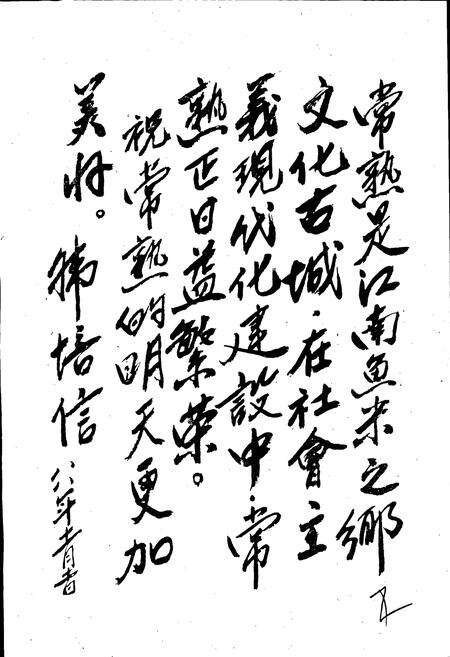 常熟是江南鱼米之鄉
文化古城.在社會主
義現代化建設中.常
熟正日益繁荣。
祝常熟的明天更加
美好。韩培信
八八年十一月廿一日